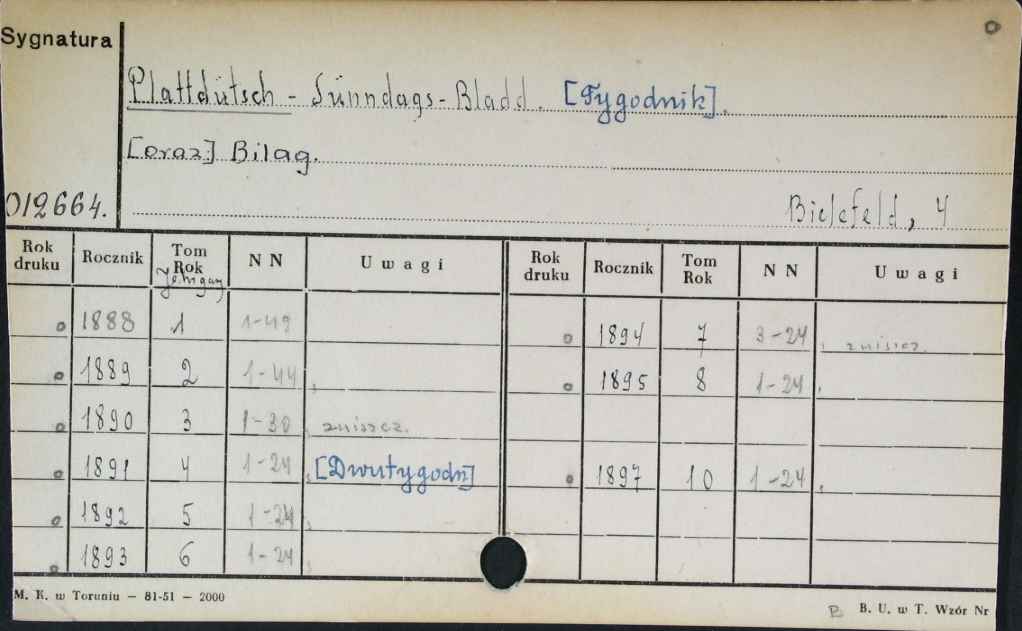 Sygnatura
Plattdütsch - Sünndags - Bladd. [Tygodnik].
[oraz] Bilag.
012664.
Bielefeld, 4
Rok druku Rocznik Tom Rok N N U w a g i Rok druku Rocznik Tom Rok N N U w a g i
1888 1 1-49 1894 7 3-24 zniszcz.
1889 2 1-44 1895 8 1-24
1890 3 1-30 zniszcz.
1891 4 1-24 [Dwutygodn] 1897 10 1-24
1892 5 1-24
1893 6 1-24
M. K. w Toruniu — 81-51 — 2000
B. U. w T. Wzór Nr